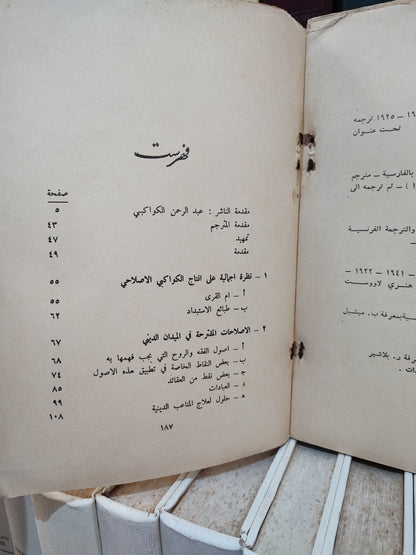 فهرست
صفحة
مقدمة الناشر : عبد الرحمن الكواكبي ٥
مقدمة المترجم ٤٣
تمهيد ٤٧
مقدمة ٤٩
١ – نظرة اجمالية على انتاج الكواكبي الاصلاحي ٥٥
أ – ام القرى ٥٥
ب – طبائع الاستبداد ٦٢
٢ – الاصلاحات المقترحة في الميدان الديني ٦٧
أ – اصول الفقه والروح التي يجب فهمها به ٦٨
ب – بعض النقاط الخاصة في تطبيق هذه الاصول ٧٤
ج – بعض نقط من العقائد ٨٥
د – العبادات ٩٩
ه – حلول لعلاج المتاعب الدينية ١٠٨
١٨٧
– ١٩٢٥ ترجمه
تحت عنوان
بالفارسية – مترجم
) – ثم ترجمه الى
والترجمة الفرنسية
– ١٩٤١ – ١٩٢٢
هنري لاووست
بمعرفة ب. ميشيل
فة ر. بلاشير